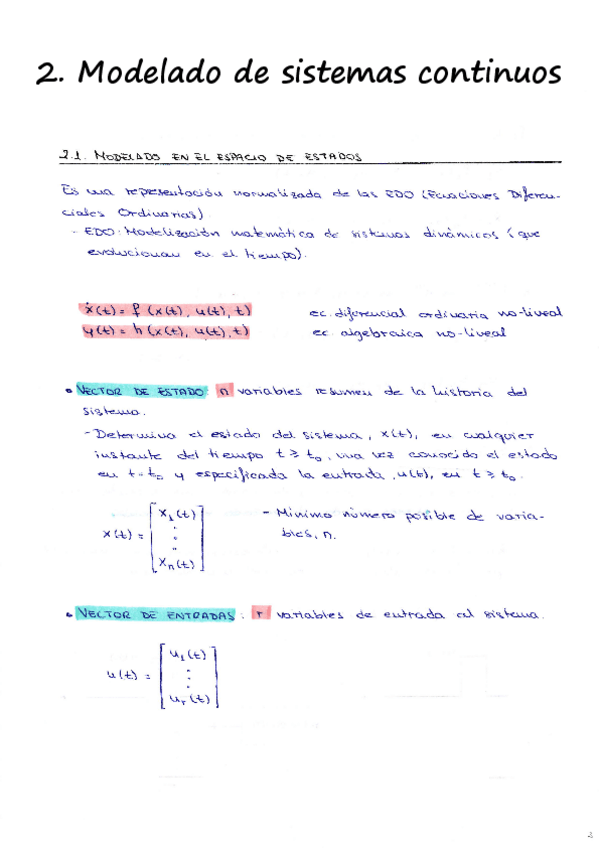 2. Modelado de sistemas continuos
2.1. MODELADO EN EL ESPACIO DE ESTADOS
Es una representación normalizada de las EDO (Ecuaciones Diferen-
ciales Ordinarias).
- EDO: Modelización matemática de sistemas dinámicos (que
evolucionan en el tiempo).
ẋ(t) = f (x(t), u(t), t) ec. diferencial ordinaria no-lineal
y(t) = h (x(t), u(t), t) ec. algebraica no-lineal
• VECTOR DE ESTADO: n variables resumen de la historia del
sistema.
- Determina el estado del sistema, x(t), en cualquier
instante del tiempo t ≥ t₀, una vez conocido el estado
en t = t₀ y especificada la entrada, u(t), en t ≥ t₀.
x(t) = [x₁(t) ⋮ xₙ(t)] - Mínimo número posible de varia-
bles, n.
• VECTOR DE ENTRADAS: r variables de entrada al sistema.
u(t) = [u₁(t) ⋮ uᵣ(t)]
2